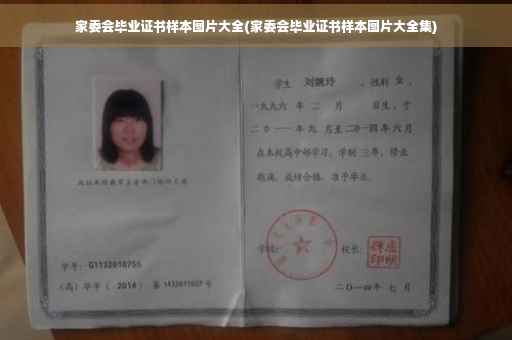 家委会毕业证书样本图片大全(家委会毕业证书样本图片大全集)
学生 刘婉玲 ，性别 女 ，
一九九六 年 二 月 日生，于
二〇一一 年 九 月至 二〇一四 年 六 月
在本校高中部学习，学制 三 年，修业
期满，成绩合格，准予毕业。
学号：G1132010755
（高）毕字（ 2014 ）第 1432011027 号
学校：
校长：
二〇一四年 七 月